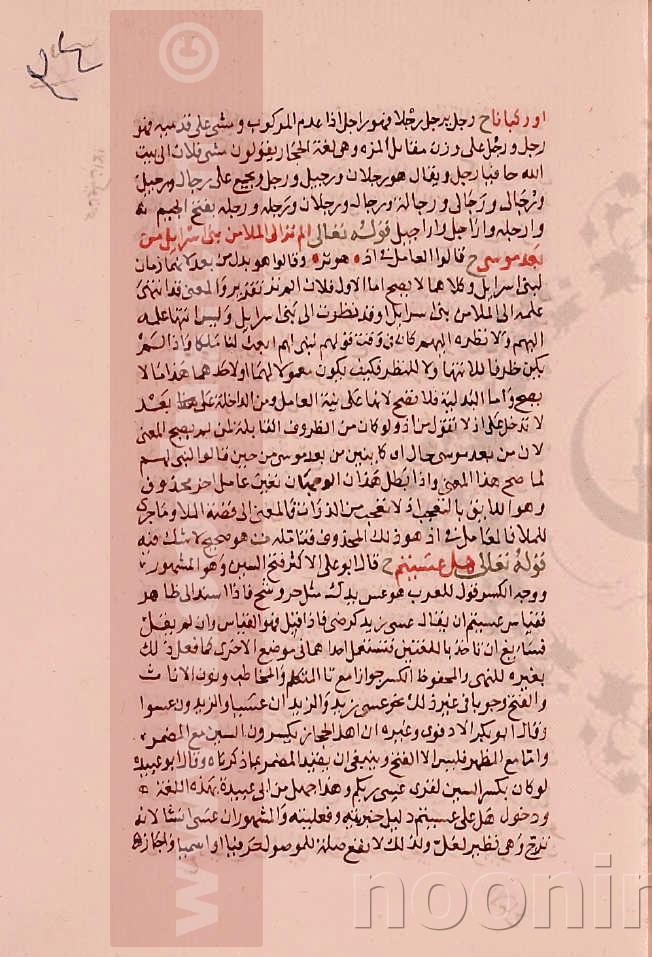 او ركبانا ح رجل يرجل رجلا فهو راجل اذا عدم المركوب ومشى على قدميه فهو
رجل ورجل على وزن مقابل المرة وهى لغة الحجاز يقولون مشى فلان الى بيت
الله حافيا رجل ويقال هو رجلان ورجيل ورجل ويجمع على رجال ورجيل
ورجالى ورجالى ورجالة ورجال ورجلان ورجلة ورجله بفتح الجيم
وارجله واراجل واراجيل قوله تعالى الم تر الى الملا من بنى اسرايل من
بعد موسى ح قالوا العامل فى اذ هو تر وقالوا هو بدل من بعد لانهما زمان
لبنى اسرايل وكلاهما لا يصح اما الاول فلان الم تر تقديره والمعنى قد انتهى
علمه الى الملا من بنى اسرايل او قد نظرت الى بنى اسرايل وليس انتها علمه
اليهم ولا نظره اليهم كان فى وقت قولهم لنبى لهم ابعث لنا ملكا واذا لم
يكن ظرفا للانتها ولا للنظر فكيف يكون معمولا لهما او لاحدهما هذا ما لا
يصح واما البدلية فلا تصح لانها على نية العامل ومن الداخلة على بعد
لا تدخل على اذ لا تقول من اذ ولو كان من الظروف القابلة لمن لم يصح المعنى
لان من بعد موسى حال اى كاينين من بعد موسى من حين قالوا لنبى لهم
لما صح هذا المعنى واذا بطل هذان الوجهان تعين عامل اخر محذوف
وهو اللايق بالتعجب اذ لا تعجب من الذوات فالمعنى الى قصة الملا وما جرى
للملا فالعامل فى اذ هو ذلك المحذوف فتامله ت هو صحيح لا شك فيه
قوله تعالى هل عسيتم ح قال ابو على الاكثر فتح السين وهو المشهور
ووجه الكسر قول العرب هو عس بذلك مثل حر وشج فاذا اسند الى ظاهر
فقياس عسيتم ان يقال عسى زيد كرضى فاذا قيل فهو القياس وان لم يقل
فسايغ ان تاخذ باللغتين فتستعمل احداهما فى موضع الاخرى كما فعل ذلك
بغيره انتهى والمحفوظ الكسر جوازا مع تا المتكلم والمخاطب ونون الاناث
والفتح وجوبا فى غير ذلك نحو عسى زيد والزيدان عسيا والزيدون عسوا
وقال ابو بكر الادفوى وغيره ان اهل الحجاز يكسرون السين مع المضمر
واما مع المظهر فليس الا الفتح وينبغى ان يقيد المضمر بما ذكرناه وقال ابو عبيد
لو كان بكسر السين لقرى عسى ربكم وهذا جهل من ابى عبيدة بهذه اللغة
ودخول هل على عسيتم دليل خبريته وفعليته والمشهور ان عسى انشا لانه
ترج وهى نظير لعل ولذلك لا يقع صلة للموصول حرفيا او اسميا واجازه
noonin